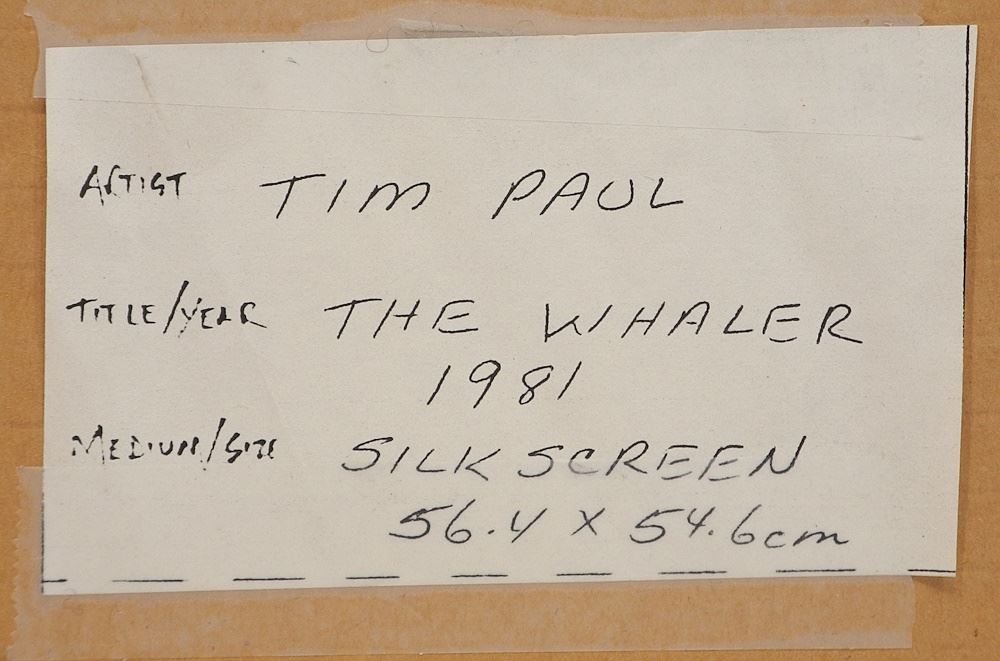 ARTIST TIM PAUL
TITLE/YEAR THE WHALER
1981
MEDIUM/SIZE SILKSCREEN
56.4 X 54.6cm